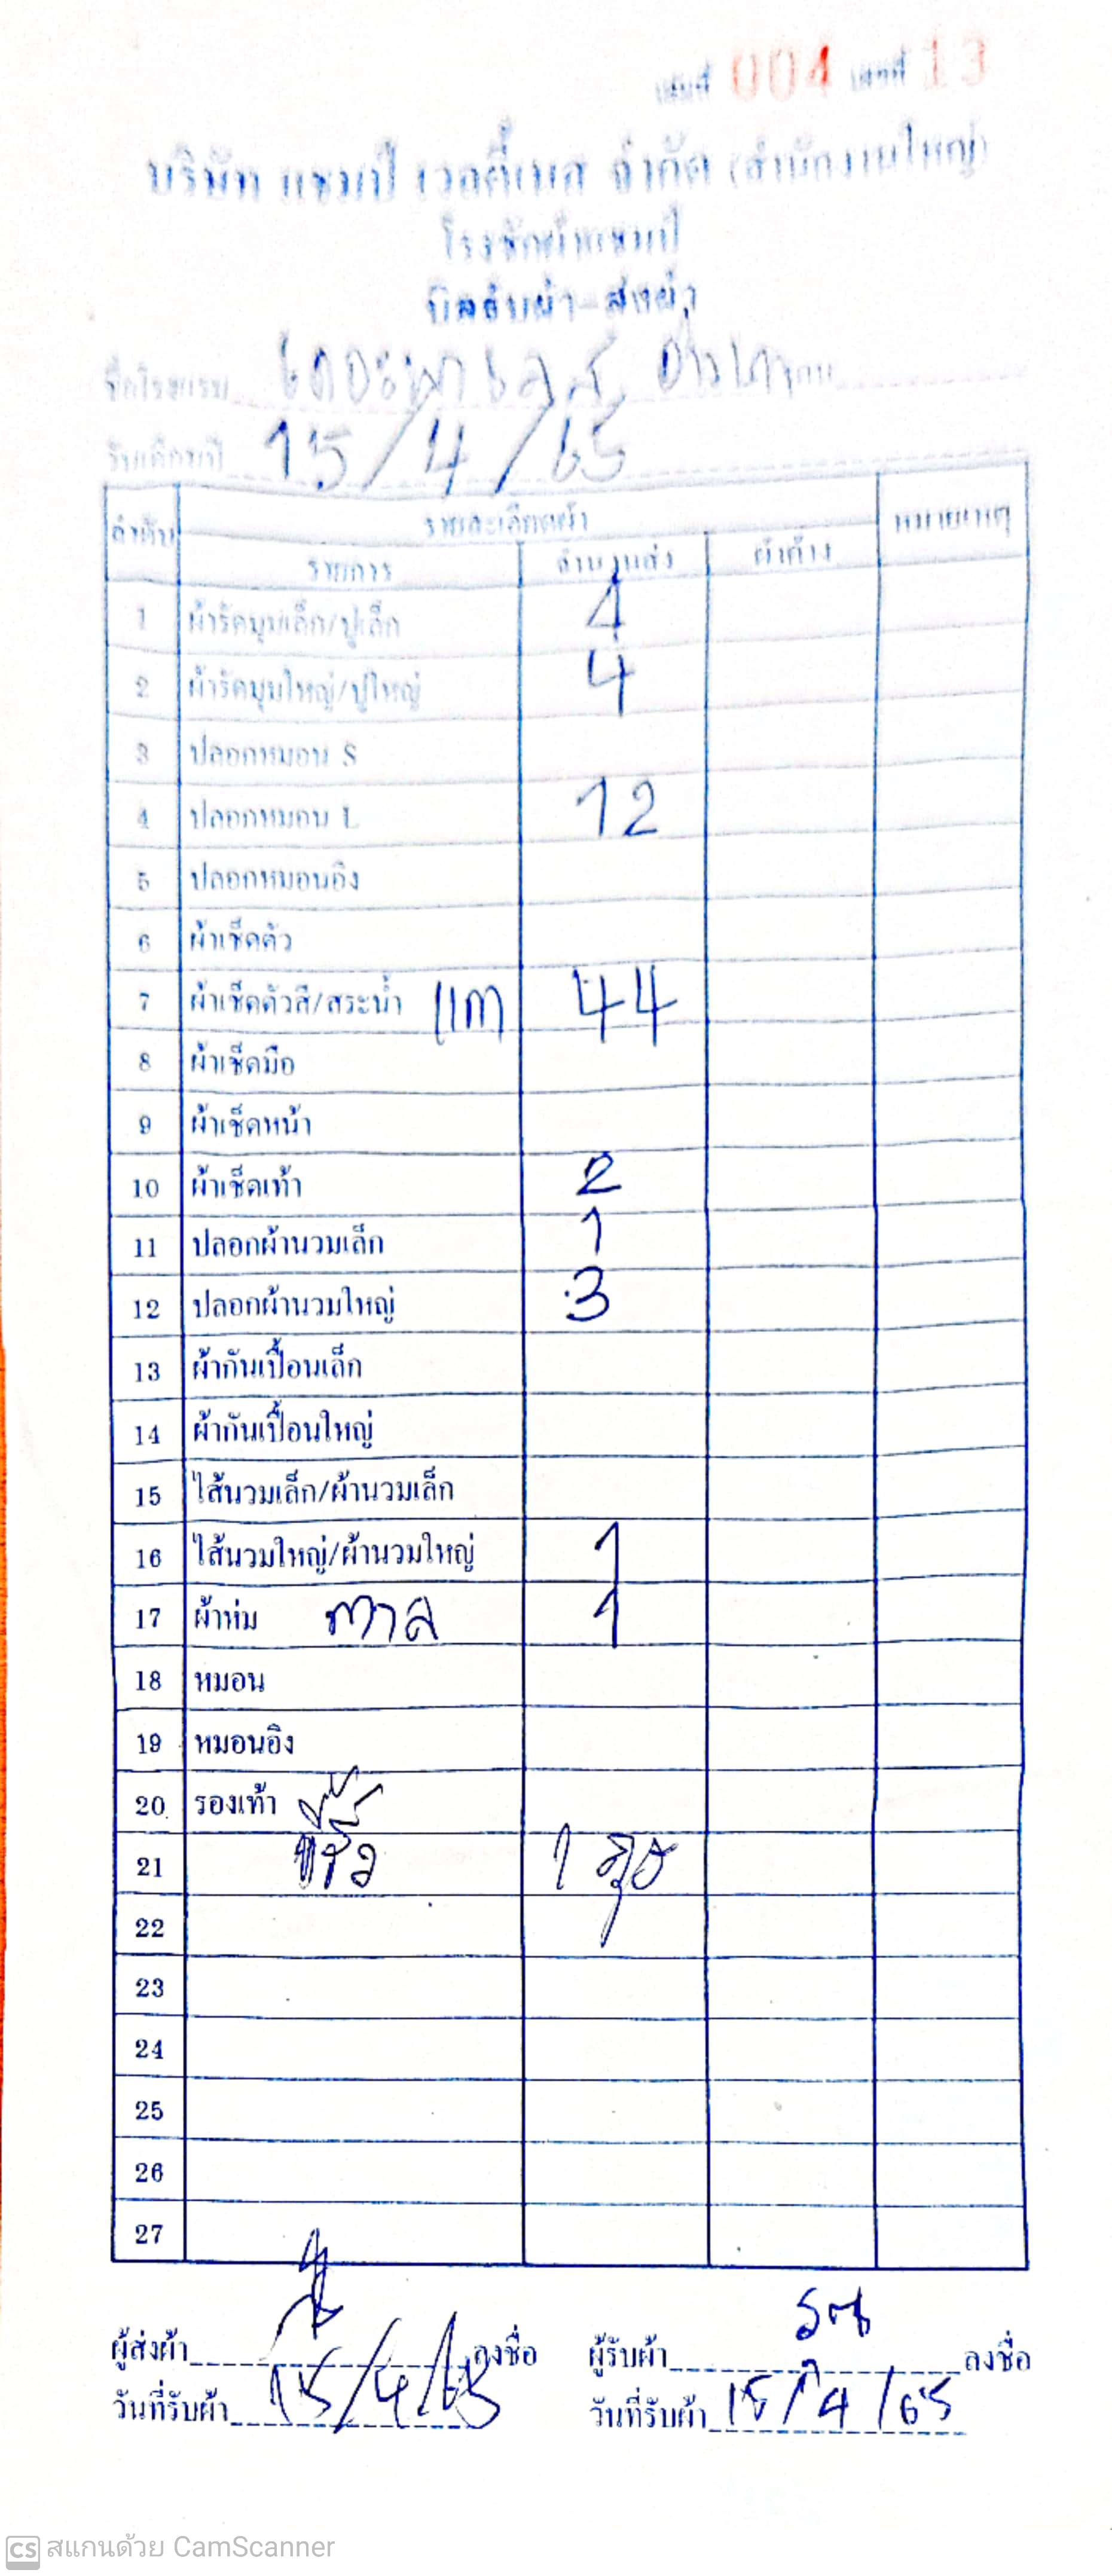 เล่มที่ 004 เลขที่ 13
บริษัท แชมป์ เวลตี้เนส จำกัด (สำนักงานใหญ่)
โรงซักผ้าแชมป์
บิลรับผ้า-ส่งผ้า
ชื่อโรงแรม
วันเดือนปี 15/4/65
ลำดับ รายละเอียดผ้า หมายเหตุ
รายการ จำนวนส่ง ผ้าค้าง
1 ผ้ารัดมุมเล็ก/ปูเล็ก 4
2 ผ้ารัดมุมใหญ่/ปูใหญ่ 4
3 ปลอกหมอน S
4 ปลอกหมอน L 12
5 ปลอกหมอนอิง
6 ผ้าเช็ดตัว
7 ผ้าเช็ดตัวสี/สระน้ำ เทา 44
8 ผ้าเช็ดมือ
9 ผ้าเช็ดหน้า
10 ผ้าเช็ดเท้า 2
11 ปลอกผ้านวมเล็ก 1
12 ปลอกผ้านวมใหญ่ 3
13 ผ้ากันเปื้อนเล็ก
14 ผ้ากันเปื้อนใหญ่
15 ไส้นวมเล็ก/ผ้านวมเล็ก
16 ไส้นวมใหญ่/ผ้านวมใหญ่ 1
17 ผ้าห่ม ตาล 1
18 หมอน
19 หมอนอิง
20 รองเท้า
21 1
22
23
24
25
26
27
ผู้ส่งผ้า ลงชื่อ ผู้รับผ้า ลงชื่อ
วันที่รับผ้า 15/4/65 วันที่รับผ้า 15/4/65
CS สแกนด้วย CamScanner